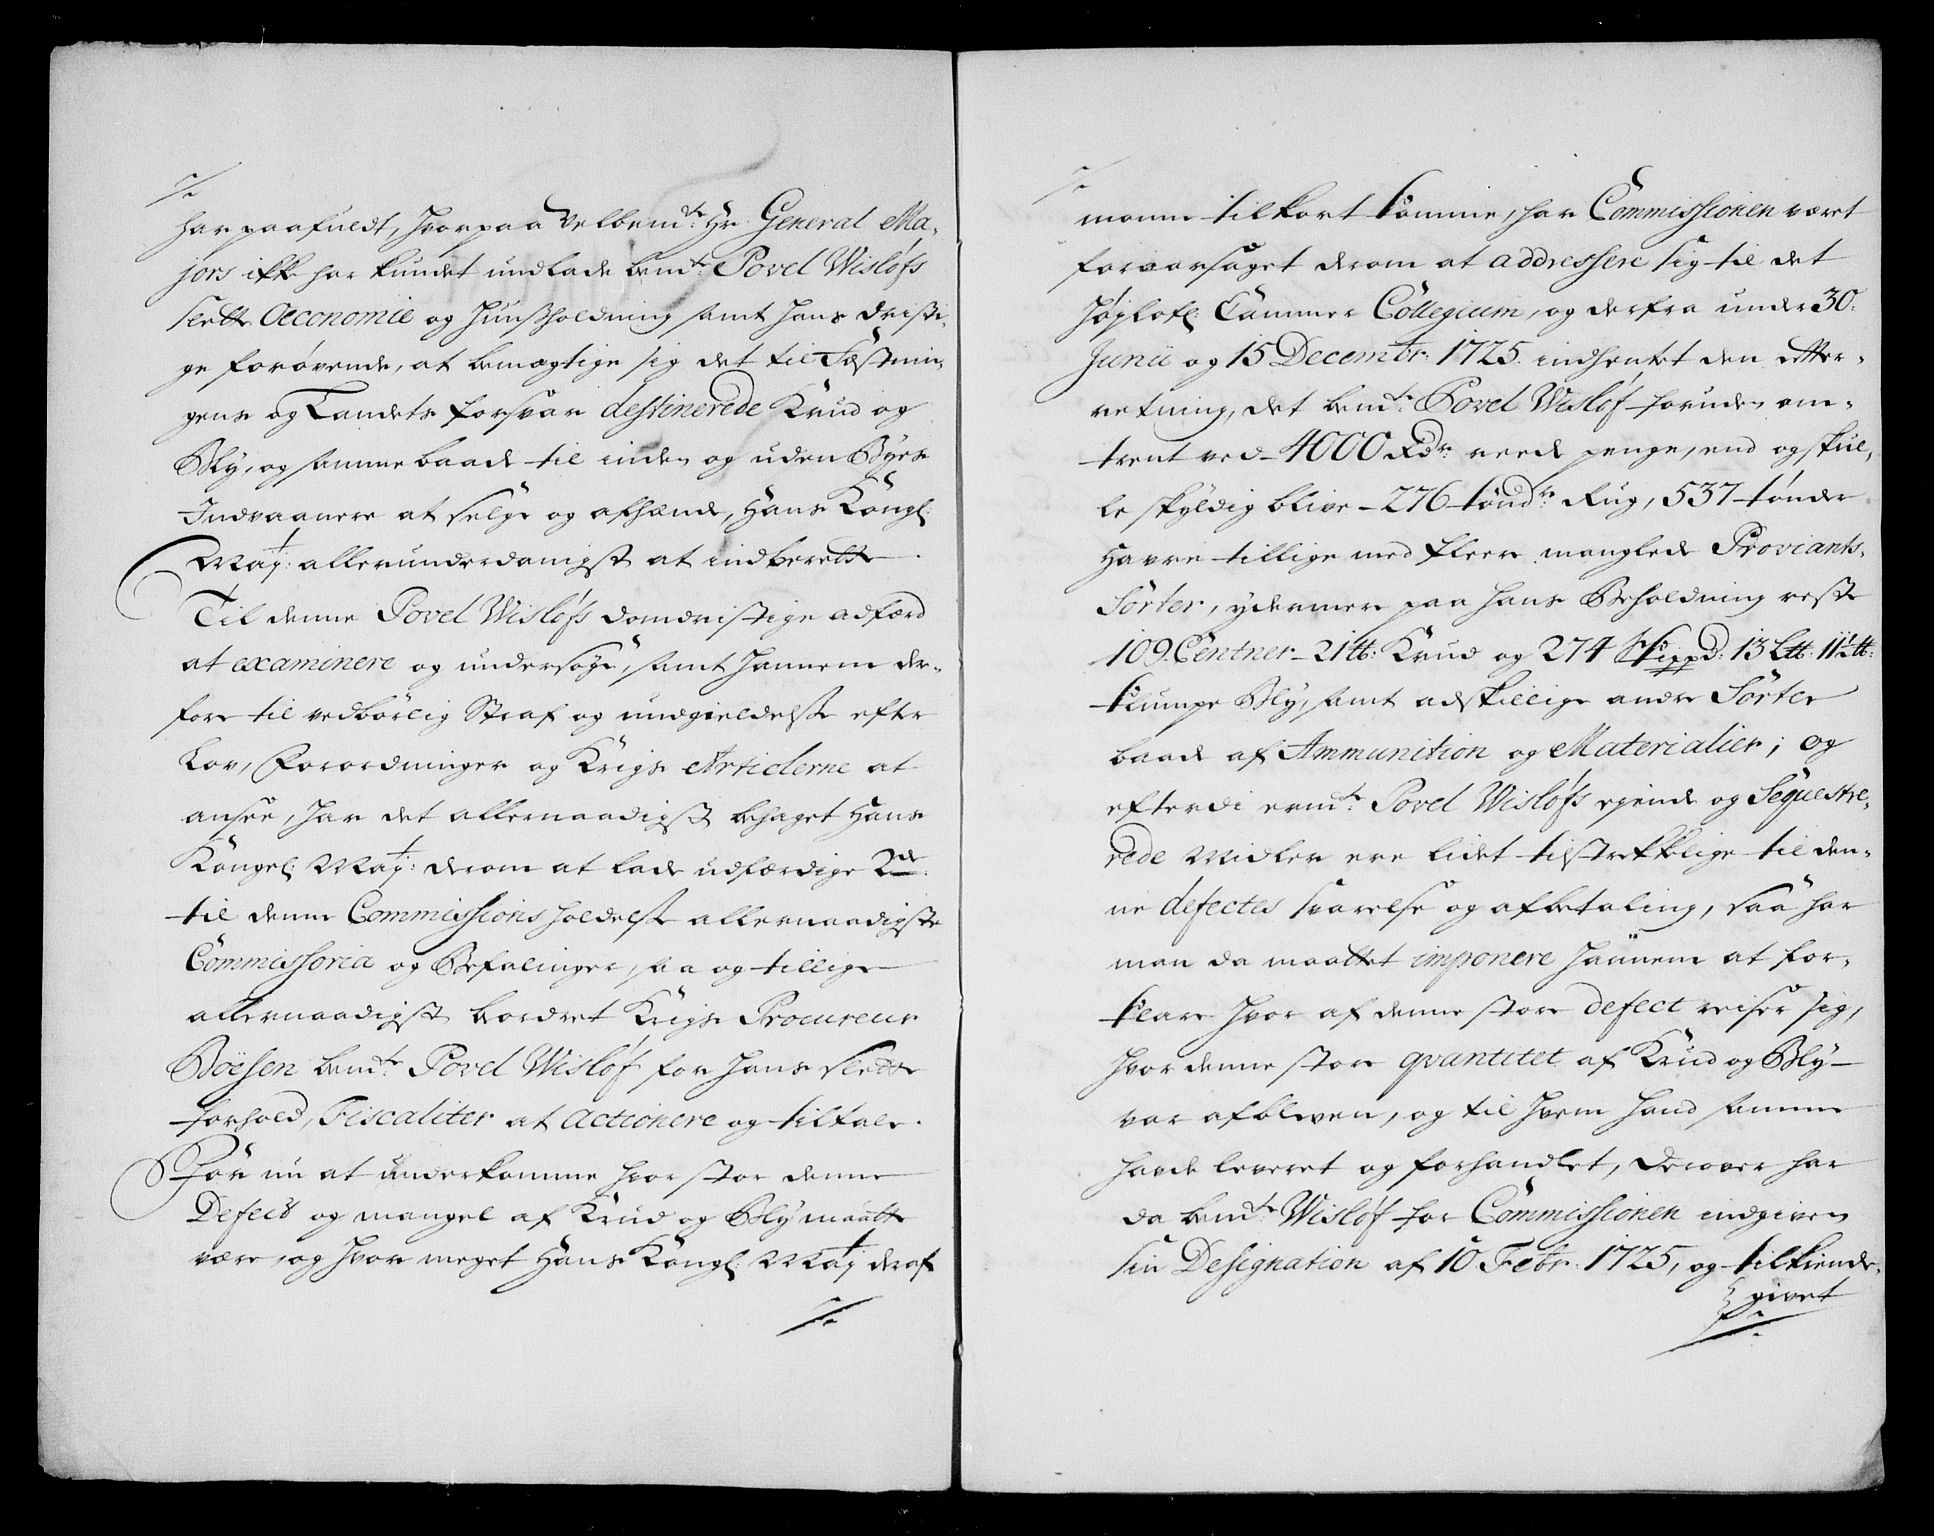 har paafuldt, hvorpaa Velbemte: Hr. General Ma-
jors ikke har kundet undlade bemte: Povel Wisløfs
slette Oeconomie og Huusholdning samt hans dristi-
ge forøvende, at bemægtige sig det til Fæstnin-
gens og Landets forsvar destinerede Krud og
Bly, og samme baade til inden og uden Byes
Indvaanere at selge og afhænde, Hans Kongl:
Mayt: allerunderdanigst at indberette.
Til denne Povel Wisløfs domdristige adfærd
at examinere og undersøge, samt hannem der-
fore til vedbørlig Straf og undgieldelse efter
Lov, Forordninger og Krigs Articlerne at
ansee, har det allernaadigst behaget Hans
Kongel: Mayt: derom at lade udfærdige 2de
til denne Commissions holdelse allernaadigste
Commissoria og Befalinger, saa og tillige
allernaadigst beordret Krigs Procureur
Boesen bemte: Povel Wisløf for hans slette
forhold, Fiscaliter at actionere og tiltale.
For nu at underkomme hvor stor denne
Defect og mangel af Krud og Bly maatte
være, og hvor meget Hans Kongl: Mayt deraf
monne tilkort komme, har Commissionen været
foraarsaget derom at addressere sig til det
Høylofl: Cammer Collegium, og derfra under 30:
Junii og 15 Decembr: 1725. indhentet den efter-
retning, det bemte: Povel Wisløf foruden om-
trent ved 4000 Rdr: reede penge, end og skul-
le skyldig blive - 276 tøndr: Rug, 537 tønder
Havre tillige med fleere manglede Proviants-
Sorter, ydermere paa hans Beholdning reste
109. Centner - 21 tt: Krud og 274 Skippd: 13 Ltt: 11½ tt:
klumpe Bly, samt adskillige andre Sorter
baade af Ammunition og Materialier; og
efterdi ermte: Povel Wisløfs egende og Seqvestre-
rede Midler ere lidet tilstrekkelige til den-
ne defectes svarelse og afbetaling, saa har
man da maattet imponere hannem at for-
klare hvor af denne store defect reiser sig,
hvor denne store qvantitet af Krud og Bly
var afbleven, og til hvem hand samme
havde leveret og forhandlet, derover har
da bemte: Wisløf for Commissionen indgiven
sin Designation af 10 Febr: 1725, og tilkiende-
givet